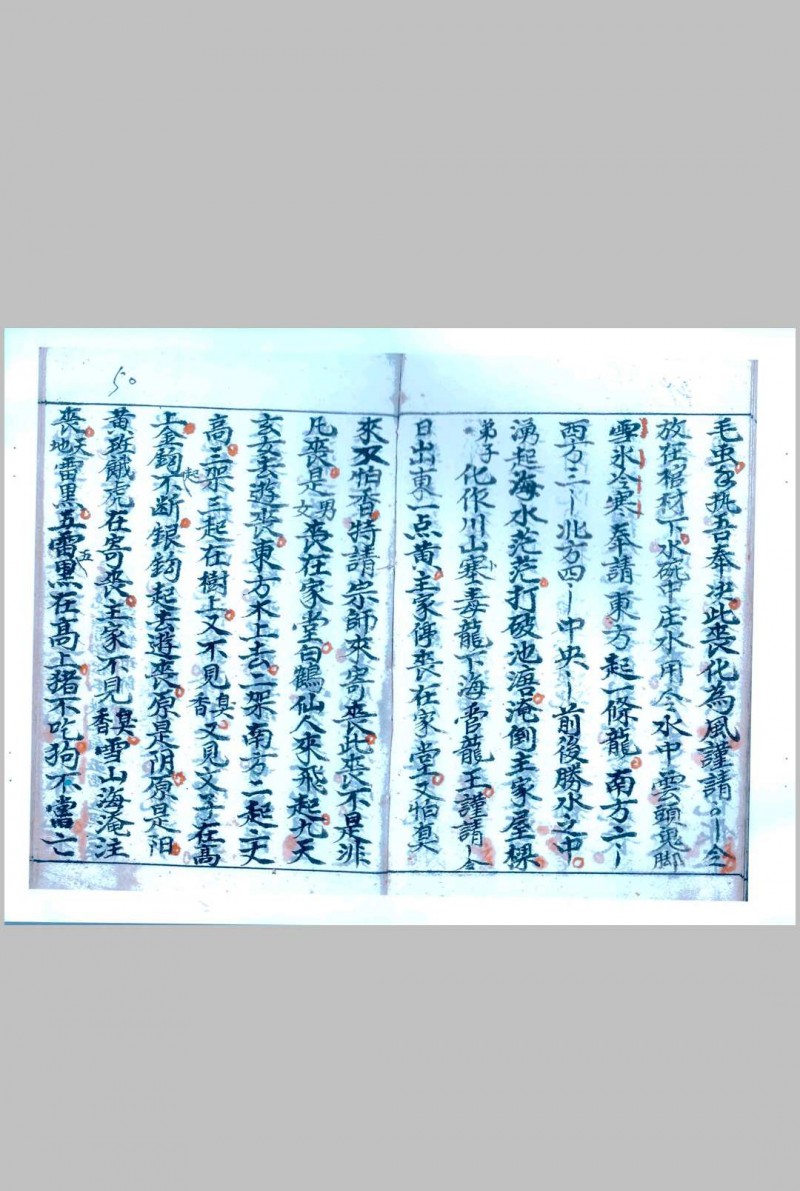 毛虫手执吾奉决此丧化為風謹請〇丨令
放在棺材下水碗中庄水用令水中雲頭鬼脚
雪水冷寒奉請東方起一條龍南方二丨
西方三丨北方四丨中央丨前後勝水之中
湧起海水茫茫打破池塘淹倒主家屋樑
弟子化作川山塞毒龍下海雪龍王謹請丨令
日出東一点黄主家停丧在家堂又怕臭
來又怕香特請宗師來寄丧此丧不是非
凡丧是男女丧在家堂白鶴仙人來飛起九天
玄女去遊丧東方木上去二架南方一起二丈
高三架三起在樹上又不見臭香又見文字在高
上金鈎不断銀鈎起去遊丧原是阴原是阳
黄斑餓虎在寄丧主家不見臭香雪山海淹注
丧天地雷黑五雷黑五在高上猪不吃狗不當亡
50